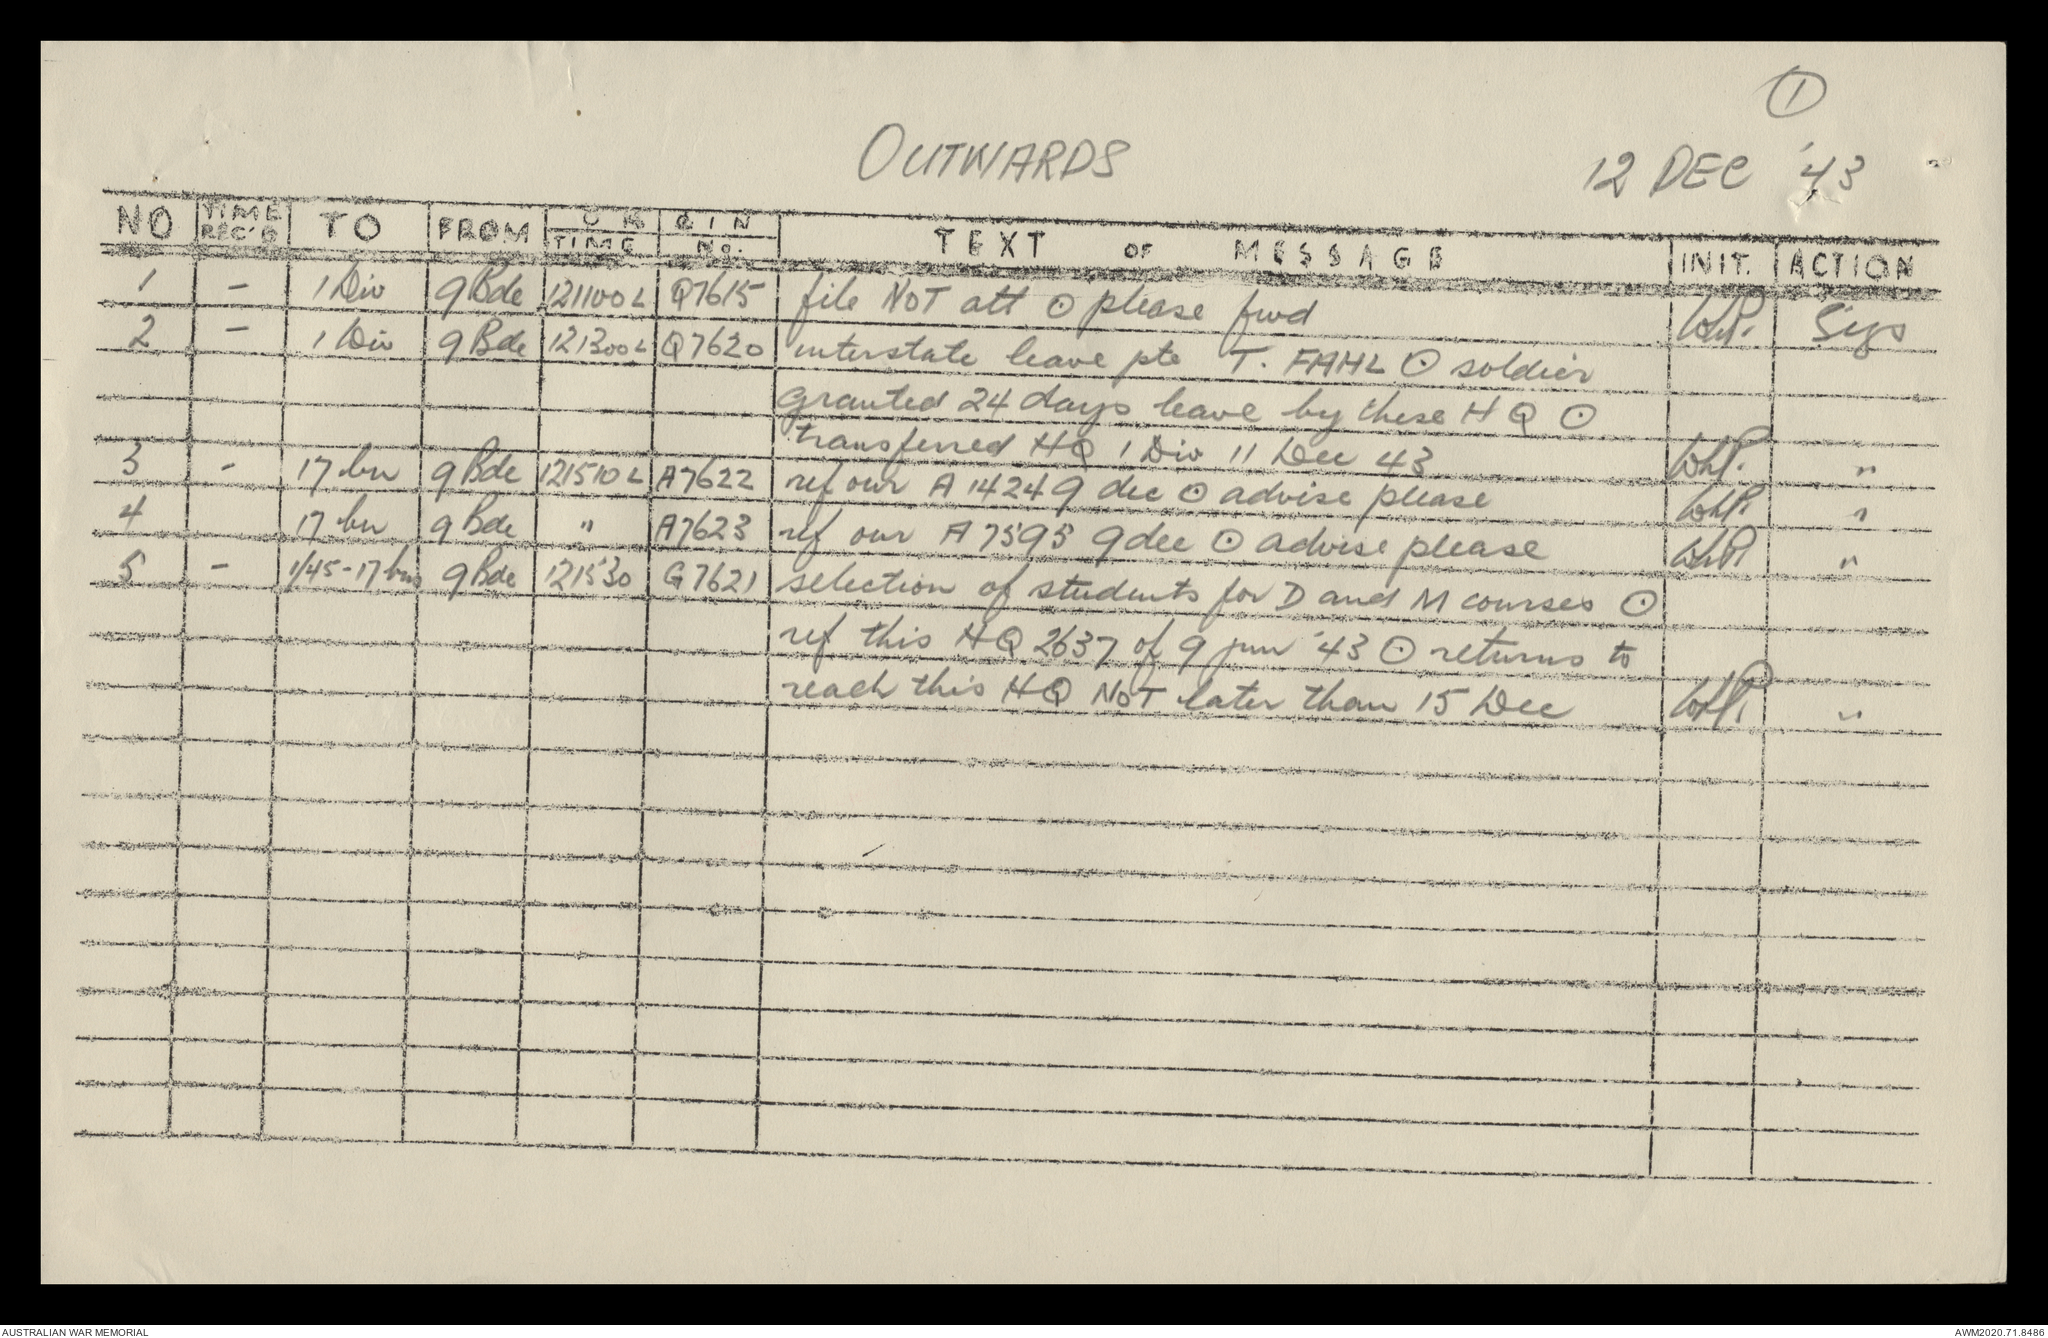 ①
OUTWARDS
12 DEC '43
NO TIME REC'D TO FROM TIME No. TEXT OF MESSAGE INIT. ACTION
1 – 1 Div 9 Bde 121100L Q7615 file NOT att ⊙ please fwd WhP. Sigs
2 – 1 Div 9 Bde 121300L Q7620 interstate leave pte T. FAHL ⊙ soldier
granted 24 days leave by these HQ ⊙
transferred HQ 1 Div 11 Dec 43 WhP. "
3 – 17 bn 9 Bde 121510L A7622 ref our A 1424 9 dec ⊙ advise please WhP. "
4 17 bn 9 Bde " A7623 ref our A 7595 9 dec ⊙ advise please WhP. "
5 – 1/45-17 bns 9 Bde 121530 G7621 selection of students for D and M courses ⊙
ref this HQ 2637 of 9 jun '43 ⊙ returns to
reach this HQ NOT later than 15 Dec WhP. "
AUSTRALIAN WAR MEMORIAL
AWM2020.71.8486